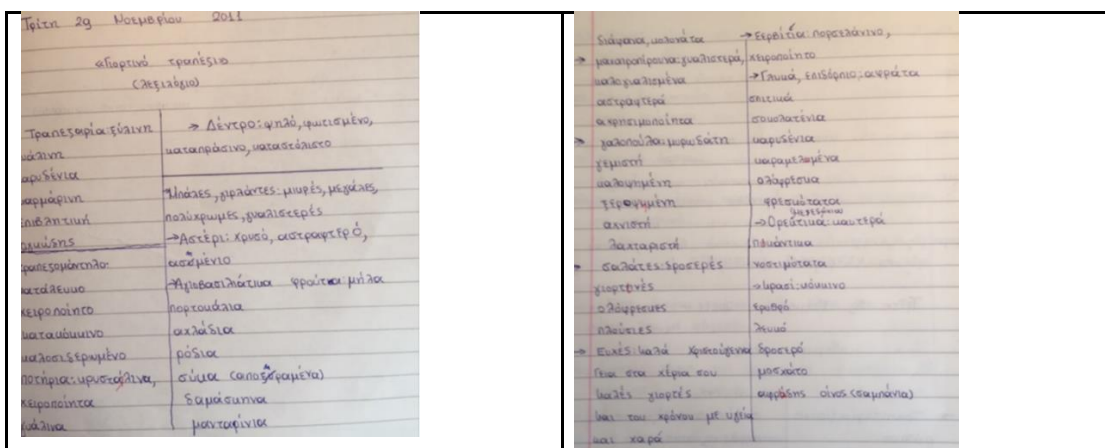 Τρίτη 29 Νοεμβρίου 2011
Γιορτινό τραπέζι
(λεξιλόγιο)
Τραπεζαρία: ξύλινη
γυάλινη
καρυδένια
μαρμάρινη
επιβλητική
τραπεζομάντηλο:
κατάλευκο
χειροποίητο
κατακόκκινο
καλοσιδερωμένο
ποτήρια: κρυστάλλινα,
χειροποίητα
γυάλινα
→ Δέντρο: ψηλό, φωτισμένο,
καταπράσινο, καταστόλιστο
Μπάλες, γιρλάντες: μικρές, μεγάλες,
πολύχρωμες, γυαλιστερές
→ Αστέρι: χρυσό, αστραφτερό,
ασημένιο
→ Αγιοβασιλιάτικα φρούτα: μήλα
πορτοκάλια
αχλάδια
ρόδια
σύκα (αποξηραμένα)
δαμάσκηνα
μανταρίνια
διάφανα, κολονάτα
→ μαχαιροπίρουνα: γυαλιστερά,
καλογυαλισμένα
αστραφτερά
αχρησιμοποίητα
→ γαλοπούλα: μυρωδάτη
γεμιστή
καλοψημένη
ξεροψημένη
αχνιστή
λαχταριστή
→ σαλάτες: δροσερές
γιορτινές
ολόφρεσκες
πλούσιες
→ Ευχές: καλά Χριστούγεννα
Γεια στα χέρια σου
καλές γιορτές
και του χρόνου με υγεία
και χαρά
→ Σερβίτσια: πορσελάνινο,
χειροποίητο
→ Γλυκά, επιδόρπιο: αφράτα
σπιτικά
σοκολατένια
καρυδένια
καραμελωμένα
ολόφρεσκα
φρεσκότατα
→ Ορεκτικά: καυτερά
πικάντικα
νοστιμότατα
→ κρασί: κόκκινο
ερυθρό
λευκό
δροσερό
μοσχάτο
αφρώδης οίνος (σαμπάνια)